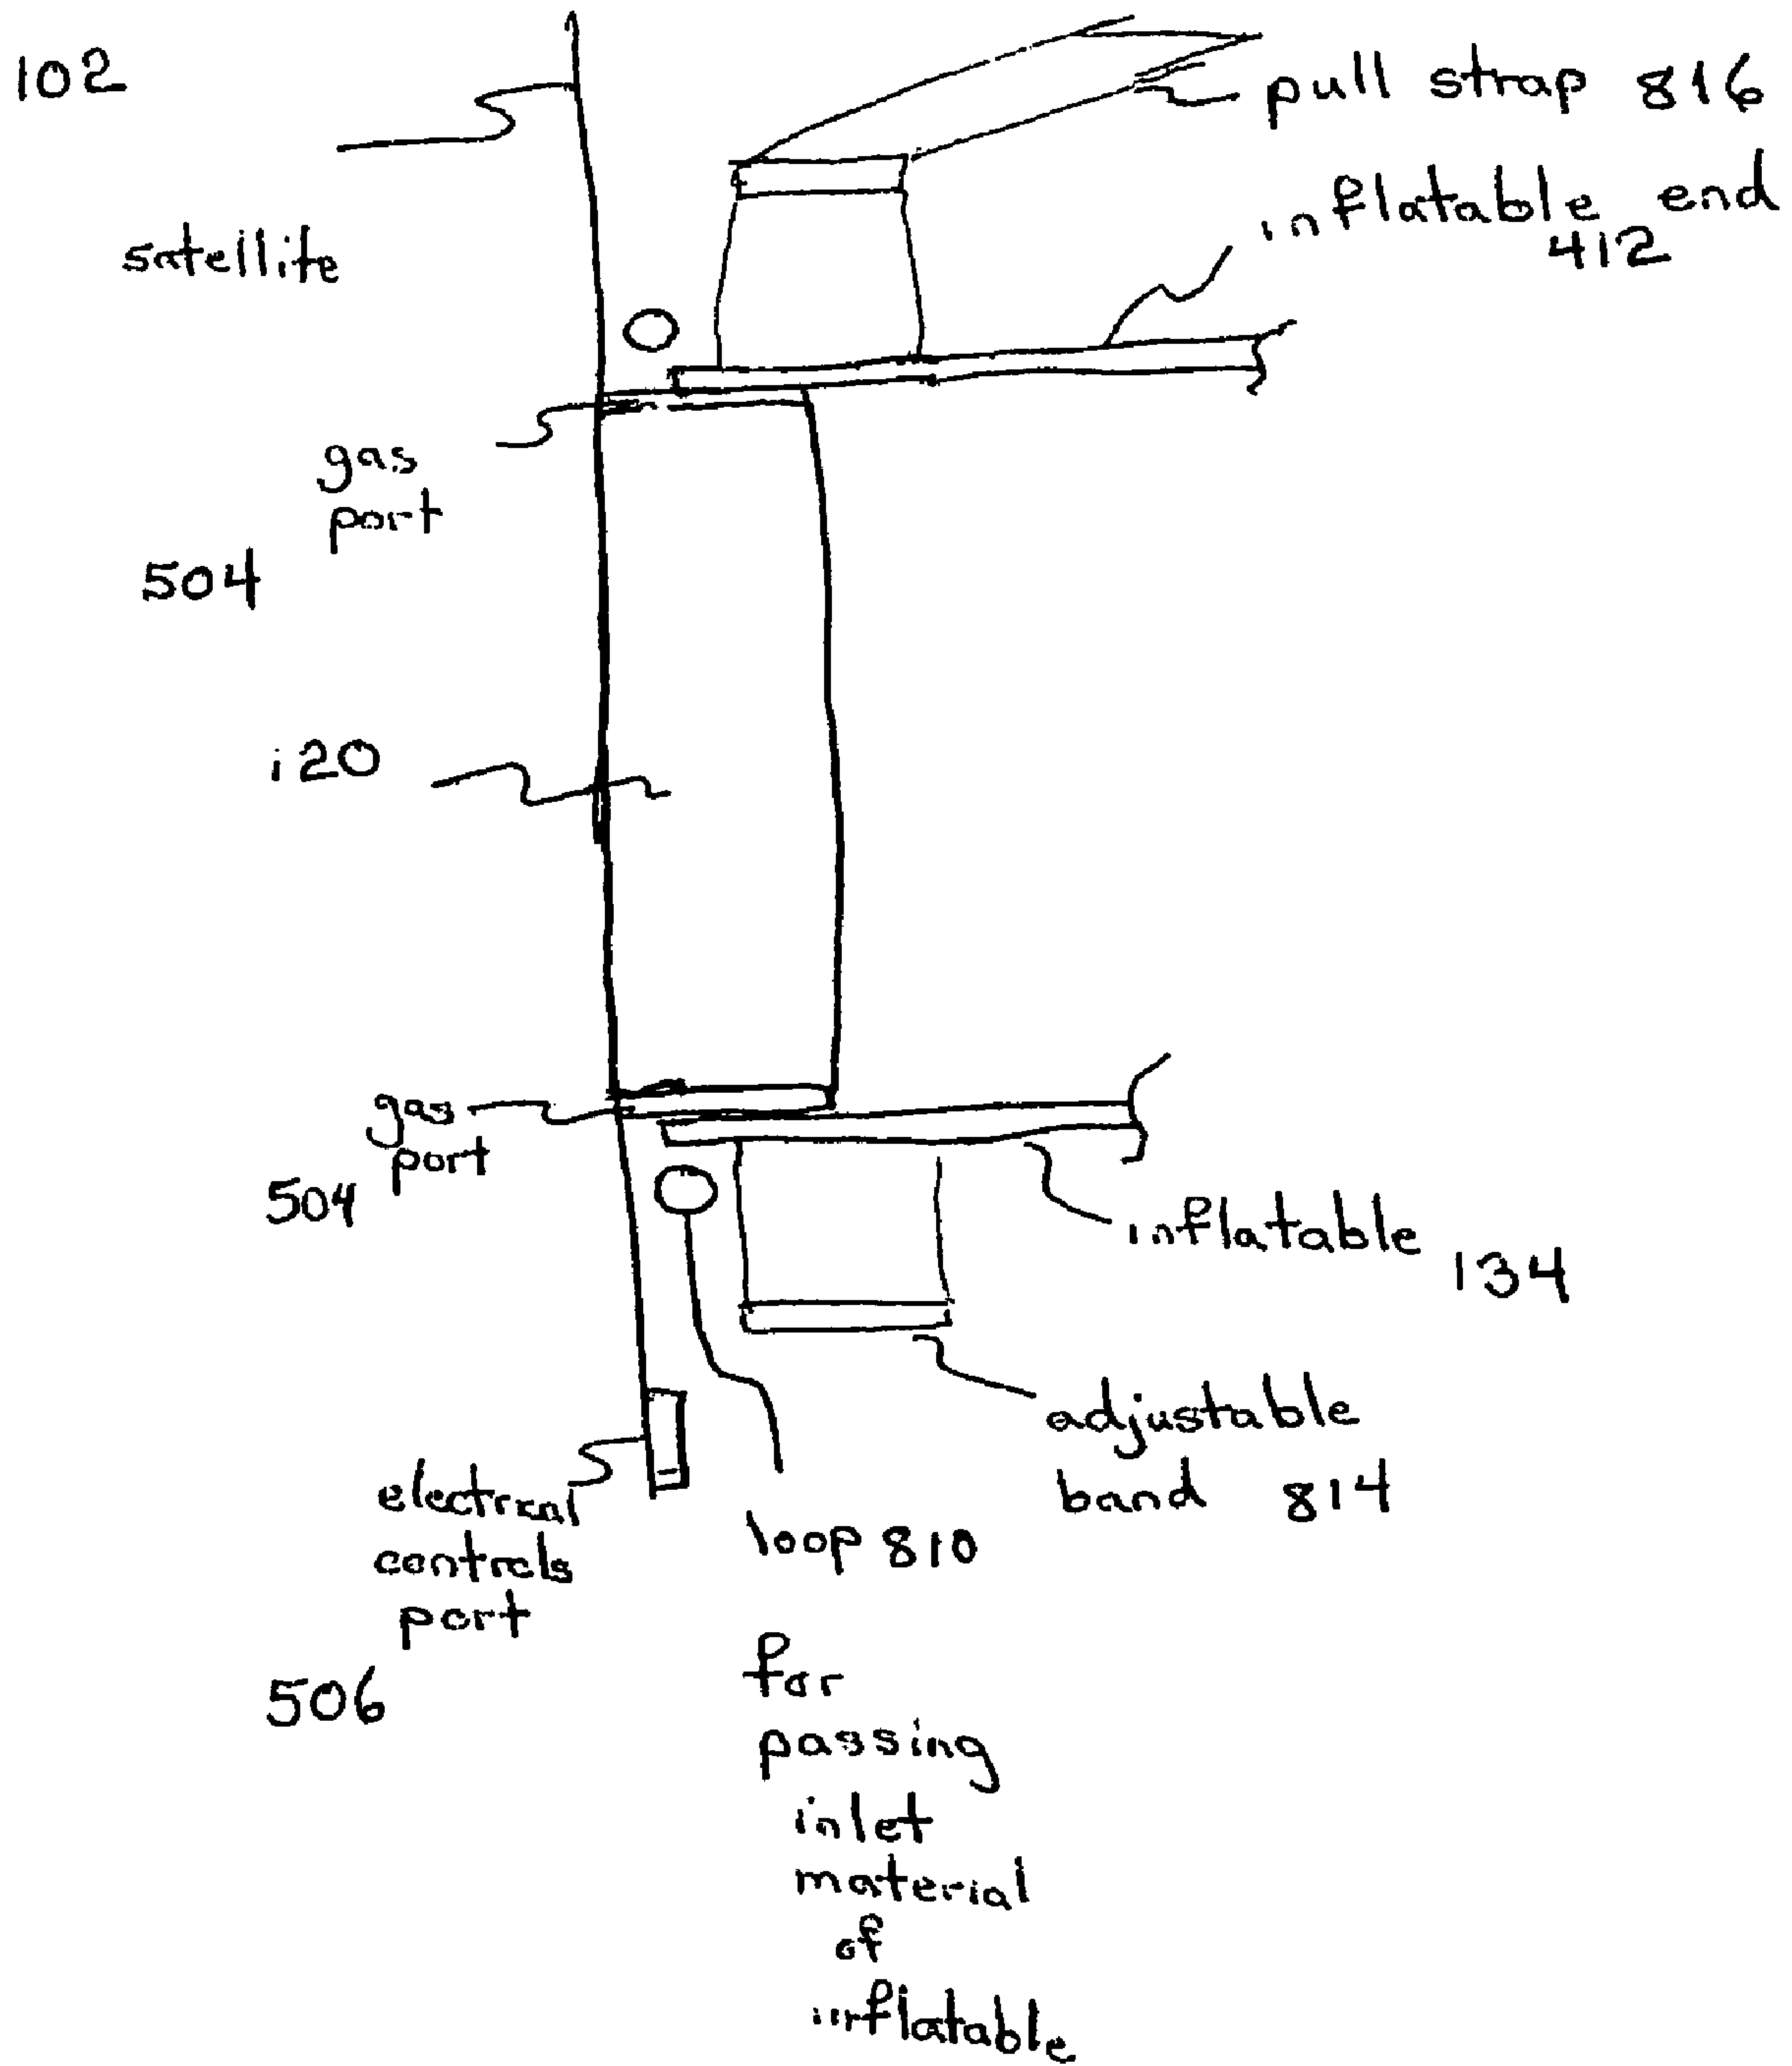 102
pull strap 816
inflatable end
412
satellite
gas
port
504
i20
gas
port
504
inflatable
134
adjustable
band 814
electrcal
controls
port
506
loop 810
for
passing
inlet
material
of
inflatable